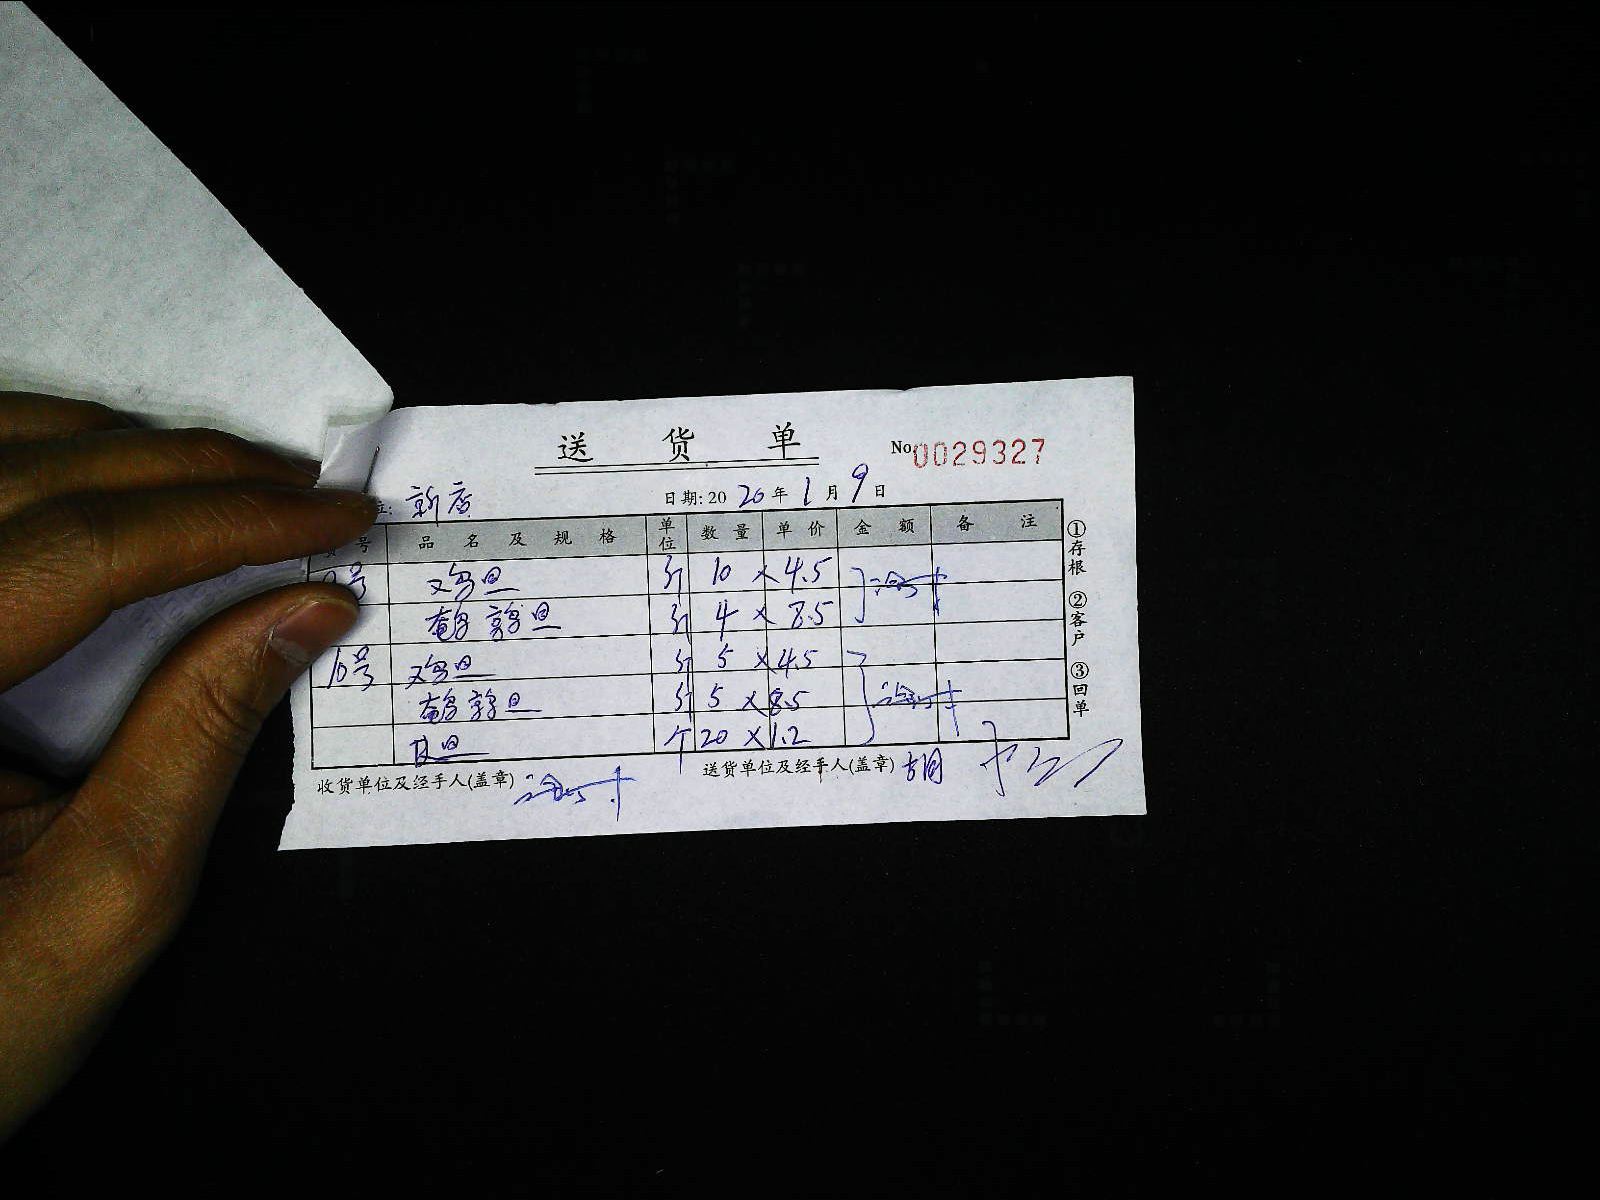 送 货 单
No. 0029327
新店 日期: 2020年1月9日
号 品名及规格 单位 数量 单价 金额 备注
号 鸡旦 斤 10 × 4.5
鹌鹑旦 斤 4 × 8.5
10号 鸡旦 斤 5 × 4.5
鹌鹑旦 斤 5 × 8.5
皮旦 个 20 × 1.2
收货单位及经手人(盖章) 送货单位及经手人(盖章) 胡
①存根 ②客户 ③回单